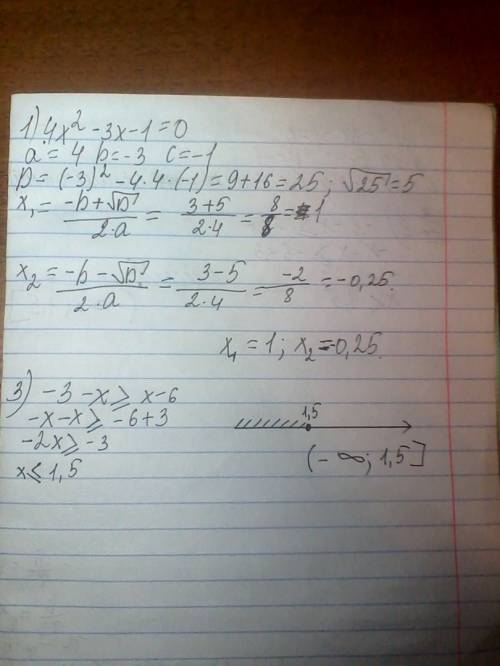 1) 4x² - 3x - 1 = 0
a = 4 b = -3 c = -1
D = (-3)² - 4·4·(-1) = 9 + 16 = 25; √25 = 5
x₁ = (-b + √D)/(2·a) = (3 + 5)/(2·4) = 8/8 = 1
x₂ = (-b - √D)/(2·a) = (3 - 5)/(2·4) = -2/8 = -0,25.
x₁ = 1; x₂ = -0,25.
3) -3 - x ⩾ x - 6
-x - x ⩾ -6 + 3
-2x ⩾ -3
x ⩽ 1,5
1,5
(-∞; 1,5]